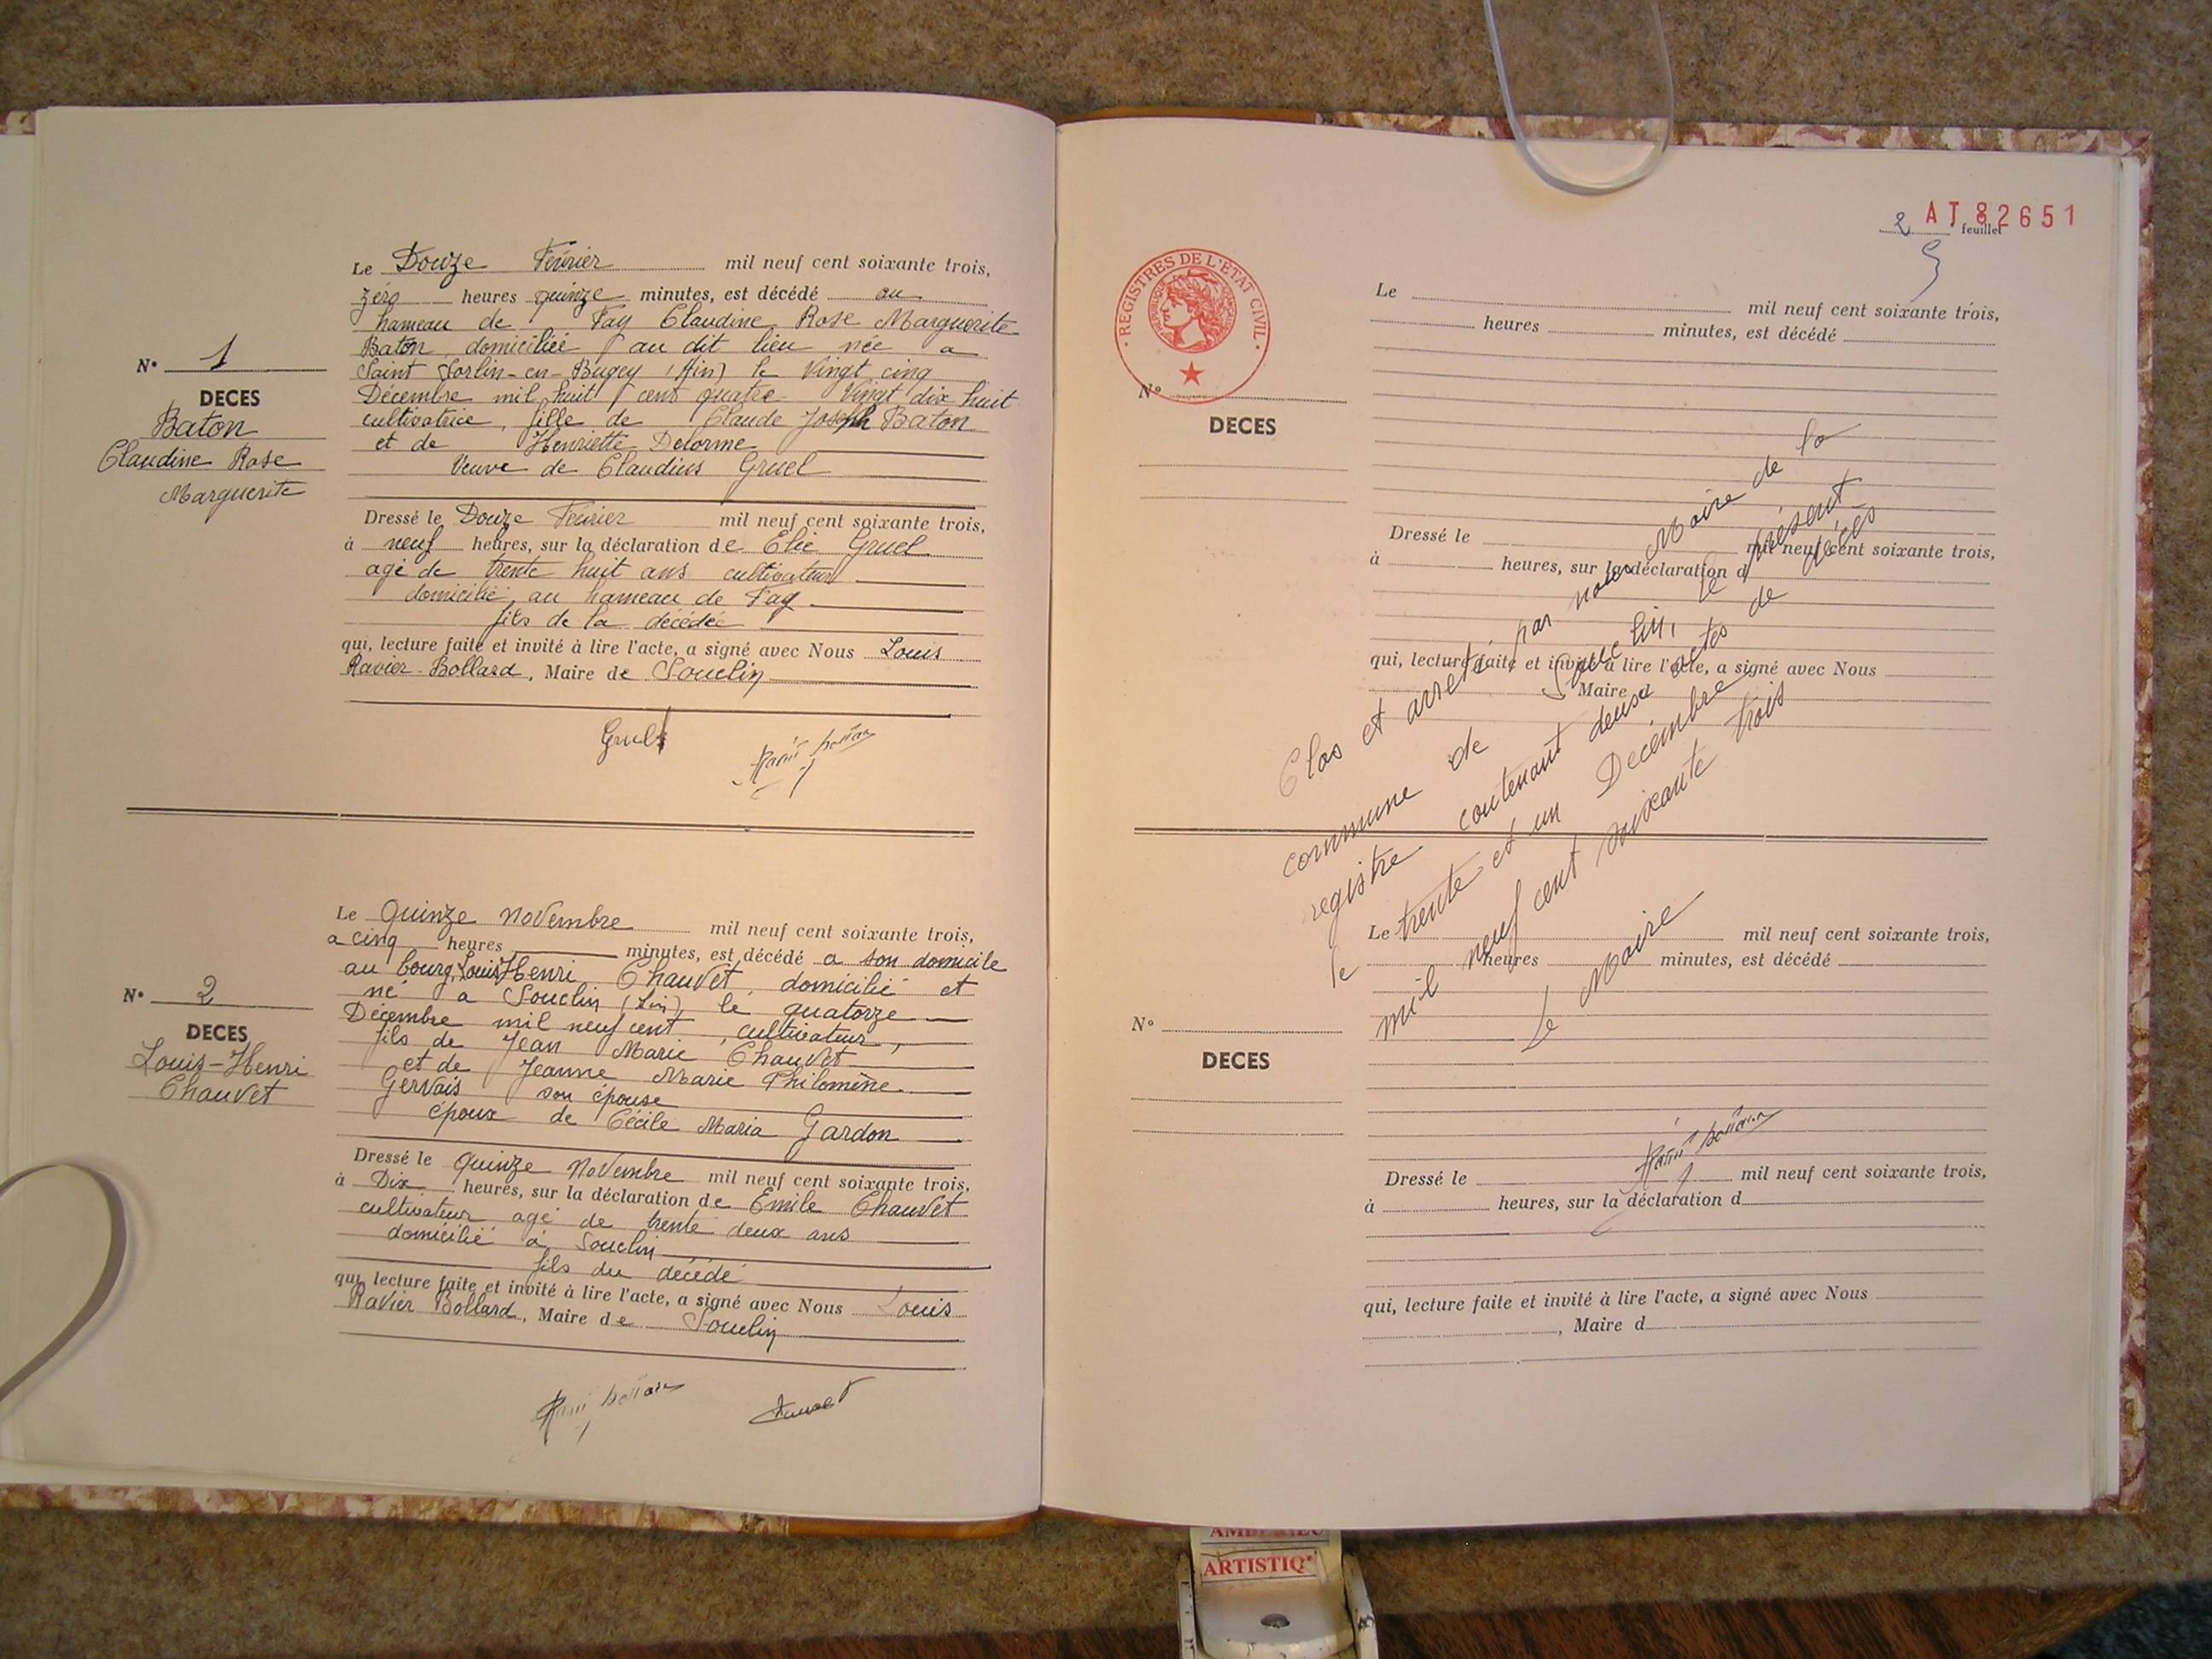 N° 1
DECES
Baton
Claudine Rose
Marguerite
Le Douze Février mil neuf cent soixante trois,
zéro heures quinze minutes, est décédé au
hameau de Fay Claudine Rose Marguerite
Baton, domiciliée au dit lieu née a
Saint Sorlin-en-Bugey (Ain) le Vingt cinq
Décembre mil huit cent quatre Vingt dix huit
cultivatrice, fille de Claude Joseph Baton
et de Henriette Delorme
Veuve de Claudius Gruel
Dressé le Douze Février mil neuf cent soixante trois,
à neuf heures, sur la déclaration de Elie Gruel
agé de trente huit ans cultivateur
domicilié au hameau de Fay
fils de la décédée
qui, lecture faite et invité à lire l'acte, a signé avec Nous Louis
Ravier-Bollard, Maire de Souclin
Gruel
N° 2
DECES
Louis-Henri
Chauvet
Le Quinze novembre mil neuf cent soixante trois,
a cinq heures minutes, est décédé a son domicile
au bourg, Louis Henri Chauvet, domicilié et
né a Souclin (Ain), le quatorze
Décembre mil neuf cent, cultivateur,
fils de Jean Marie Chauvet
et de Jeanne Marie Philomène
Gervais son épouse
époux de Cécile Maria Gardon
Dressé le quinze Novembre mil neuf cent soixante trois,
à Dix heures, sur la déclaration de Emile Chauvet
cultivateur agé de trente deux ans
domicilié à Souclin
fils du décédé
qui, lecture faite et invité à lire l'acte, a signé avec Nous Louis
Ravier Bollard, Maire de Souclin
2 feuillet
AT 82651
REGISTRES DE L'ETAT CIVIL
N°
DECES
Le mil neuf cent soixante trois,
heures minutes, est décédé
Dressé le mil neuf cent soixante trois,
à heures, sur la déclaration d
qui, lecture faite et invité à lire l'acte, a signé avec Nous
Maire d
Clos et arreté par nous Maire de la
commune de Souclin, le présent
registre contenant deux actes de décès
le trente et un Décembre
mil neuf cent soixante trois
Le Maire
N°
DECES
Le mil neuf cent soixante trois,
heures minutes, est décédé
Dressé le mil neuf cent soixante trois,
à heures, sur la déclaration d
qui, lecture faite et invité à lire l'acte, a signé avec Nous
, Maire d
ARTISTIQ